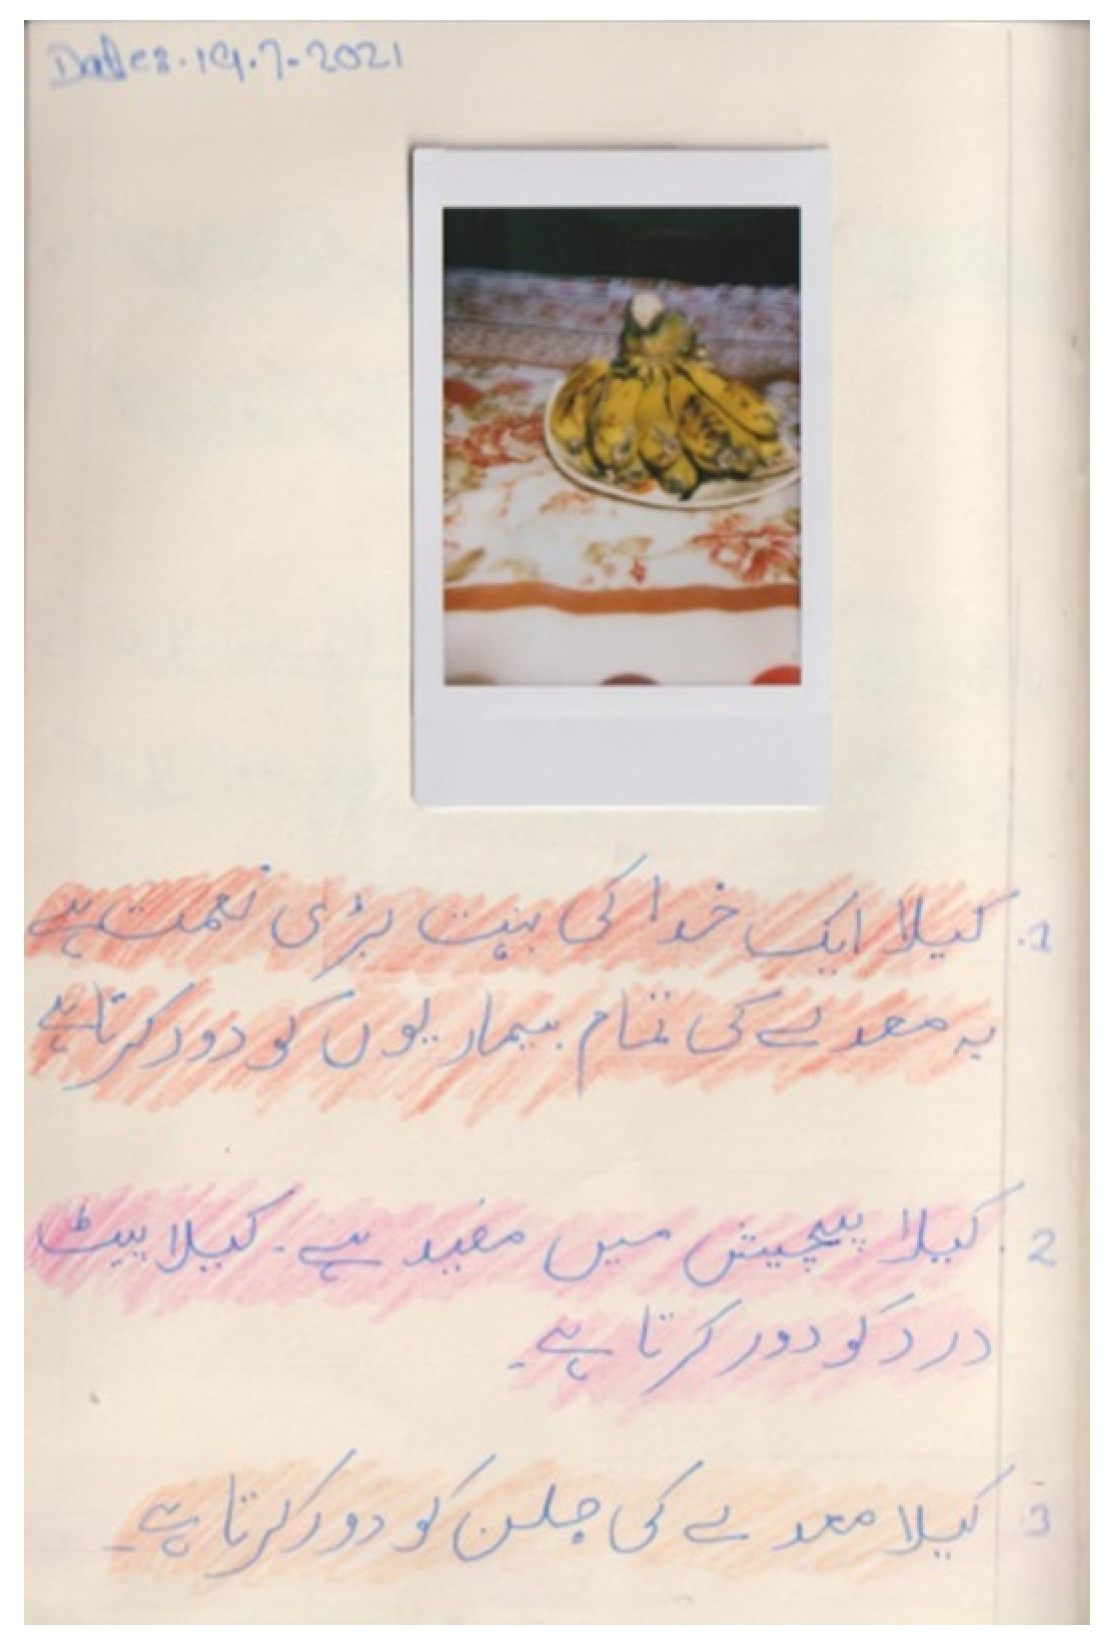 Date: 19.7.2021
1. کیلا ایک خدا کی بہت بڑی نعمت ہے
یہ معدے کی تمام بیماریوں کو دور کرتا ہے
2. کیلا پیچیش میں مفید ہے۔ کیلا پیٹ
درد کو دور کرتا ہے۔
3. کیلا معدے کی جلن کو دور کرتا ہے۔